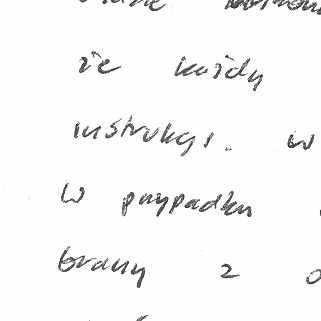 że każdy
instrukcji. w
w przypadku
brany z